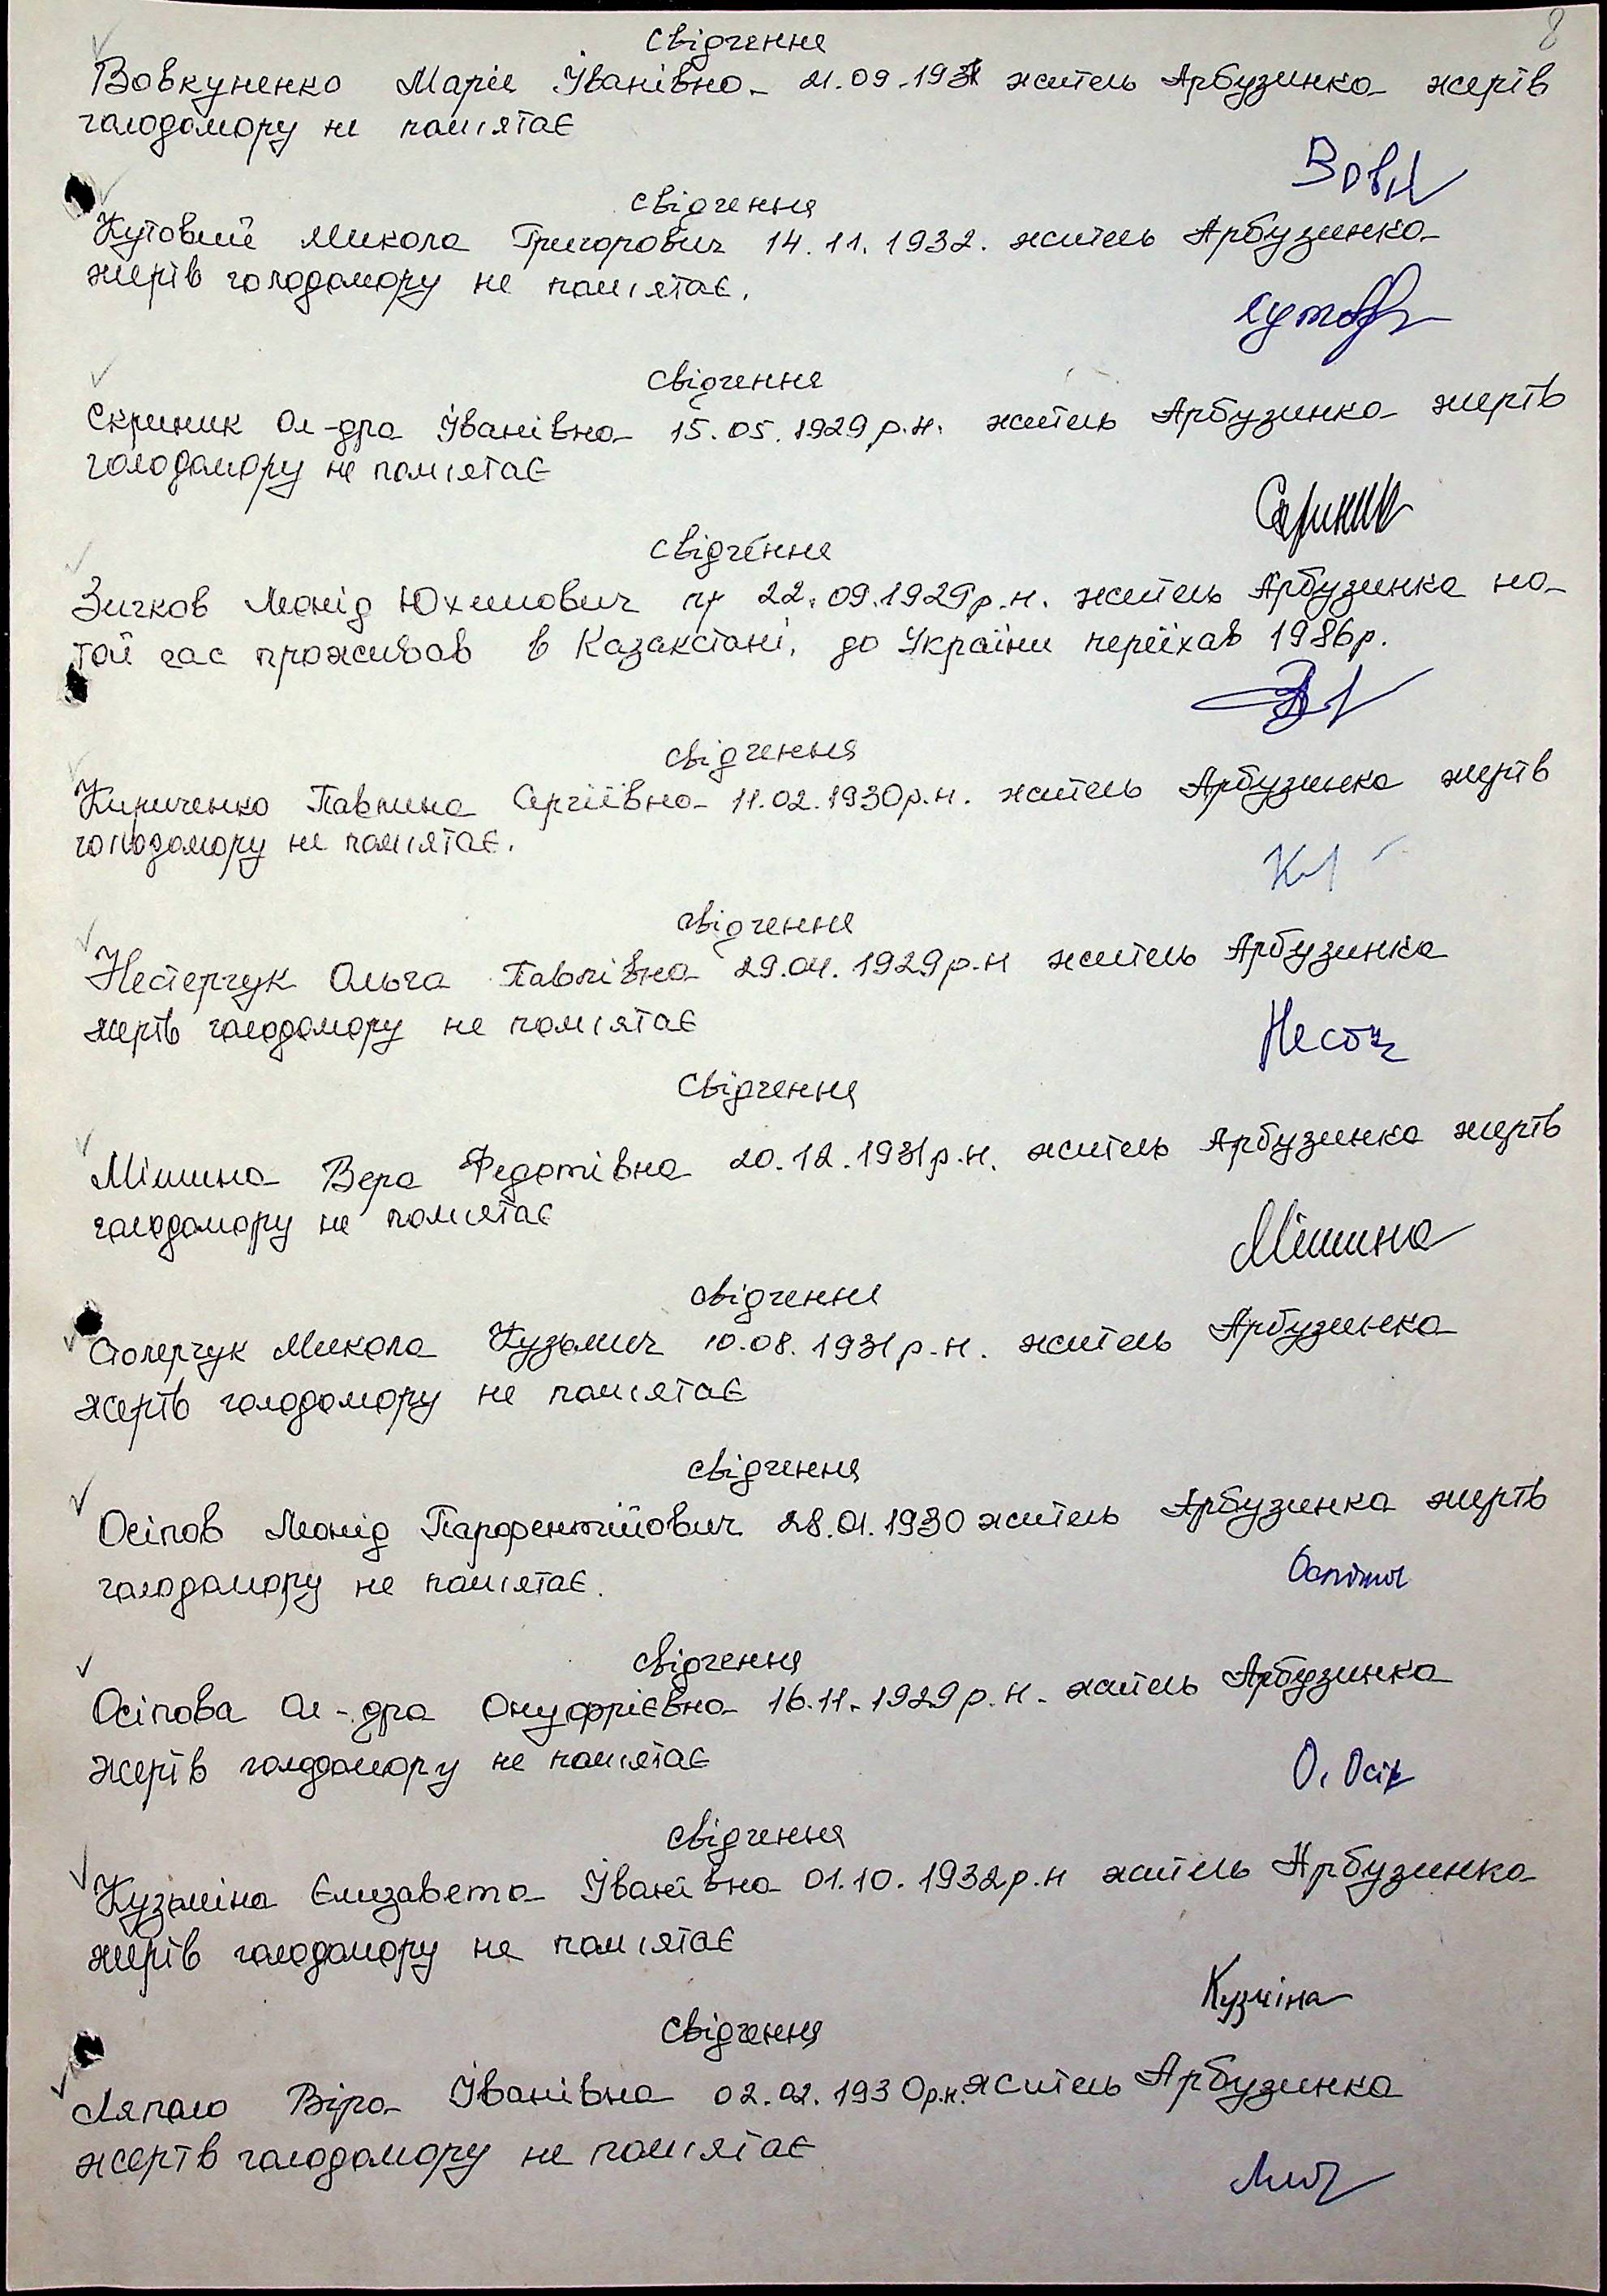 8
свідчення
Вовкуненко Марія Іванівна 21.09.193 житель Арбузинка жертв
голодомору не пам'ятає
Вовк
свідчення
Кутовий Микола Григорович 14.11.1932. житель Арбузинка
жертв голодомору не пам'ятає.
Кутов
свідчення
Скриник Ол-дра Іванівна 15.05.1929 р.н. житель Арбузинка жертв
голодомору не пам'ятає
Скриник
свідчення
Зичков Леонід Юхимович 22.09.1929 р.н. житель Арбузинка на
той час проживав в Казакстані, до України переїхав 1986р.
свідчення
Кириченко Павлина Сергіївна 11.02.1930р.н. житель Арбузинка жертв
голодомору не пам'ятає.
свідчення
Нестерчук Ольга Павлівна 29.04.1929 р.н житель Арбузинка
жертв голодомору не пам'ятає
Нест
свідчення
Мішина Вера Федотівна 20.12.1931р.н. житель Арбузинка жертв
голодомору не пам'ятає
Мішина
свідчення
Столерчук Микола Кузьмич 10.08.1931 р.н. житель Арбузинка
жертв голодомору не пам'ятає
свідчення
Осіпов Леонід Парфентійович 28.01.1930 житель Арбузинка жертв
голодомору не пам'ятає.
свідчення
Осіпова Ол-дра Онуфрієвна 16.11.1929 р.н. житель Арбузинка
жертв голодомору не пам'ятає
О. Осіп
свідчення
Кузьміна Єлизавета Іванівна 01.10.1932р.н житель Арбузинка
жертв голодомору не пам'ятає
Кузміна
свідчення
Ляпало Віра Іванівна 02.02.1930р.н. житель Арбузинка
жертв голодомору не пам'ятає